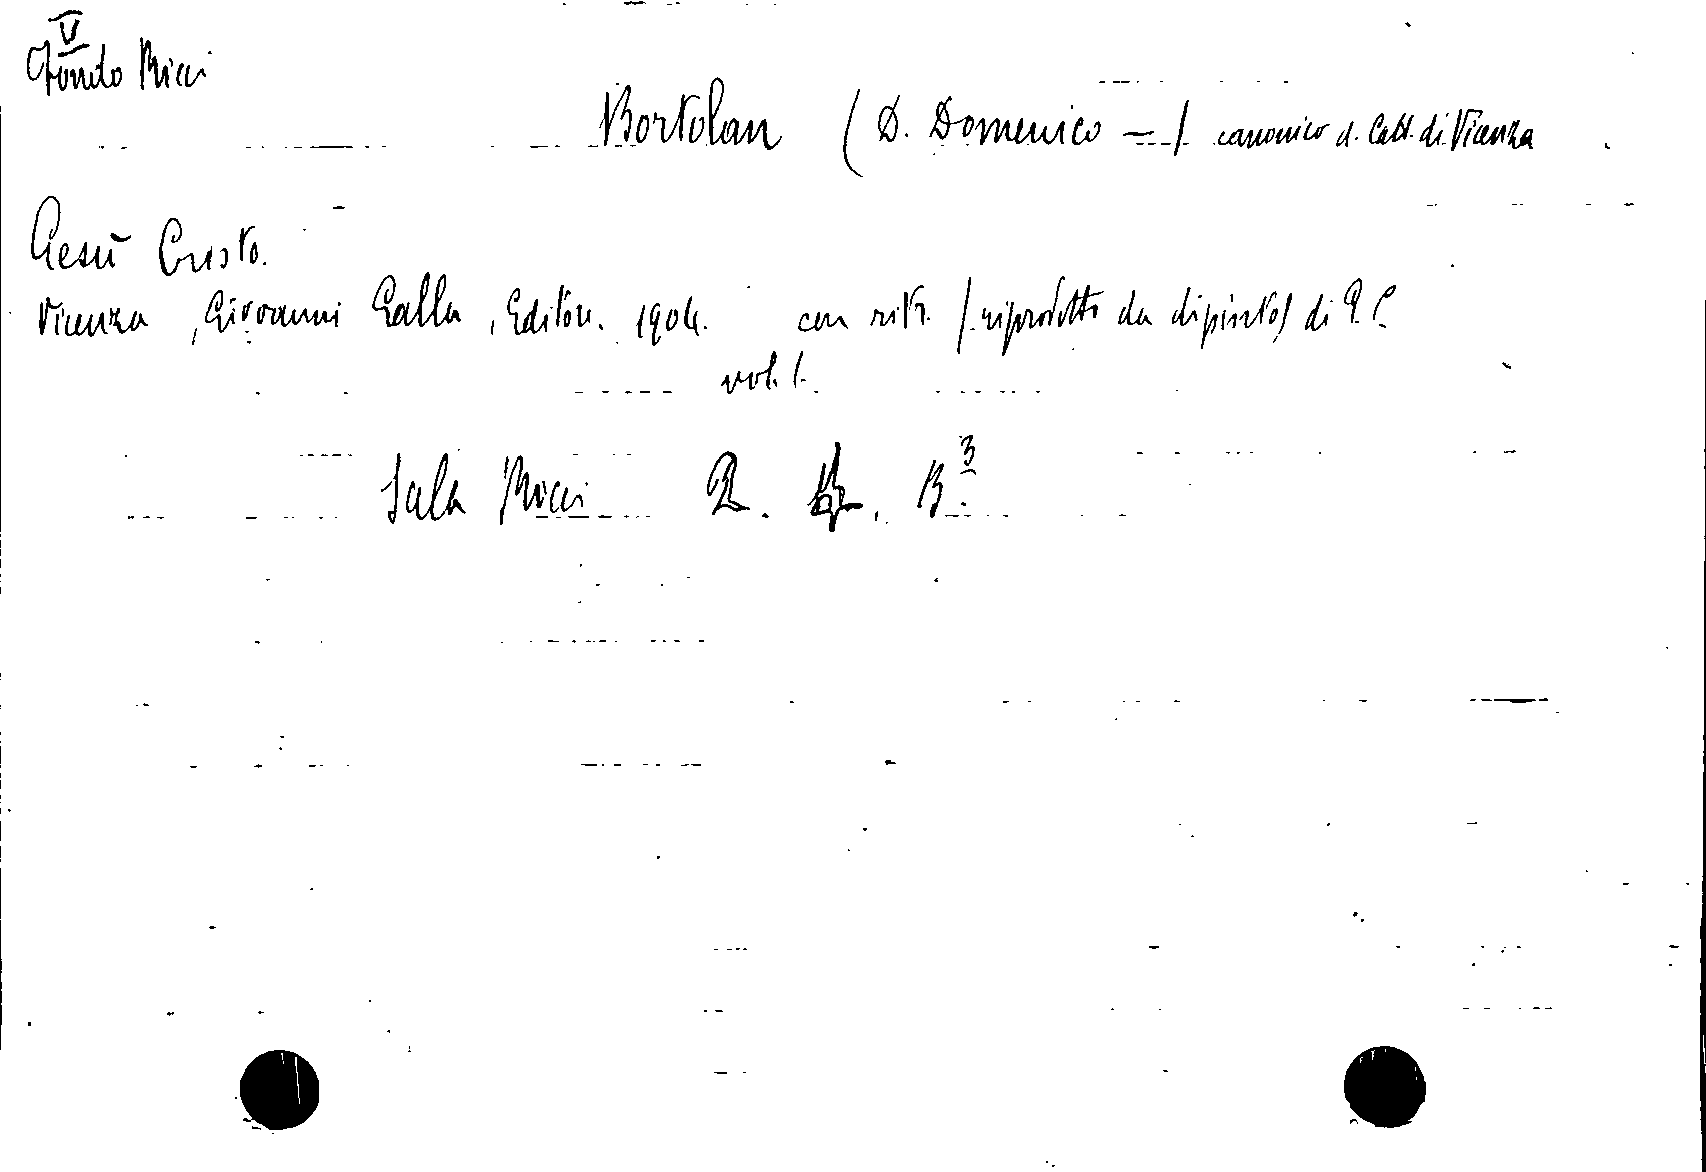 V
Fondo Ricci
Bortolan (D. Domenico —) canonico d. Catt. di Vicenza
Gesù Cristo.
Vicenza, Giovanni Galla, Editore. 1904. con ritr. (riprodotto da dipinto) di G. C.
vol. 1.
Sala Ricci R. B.3